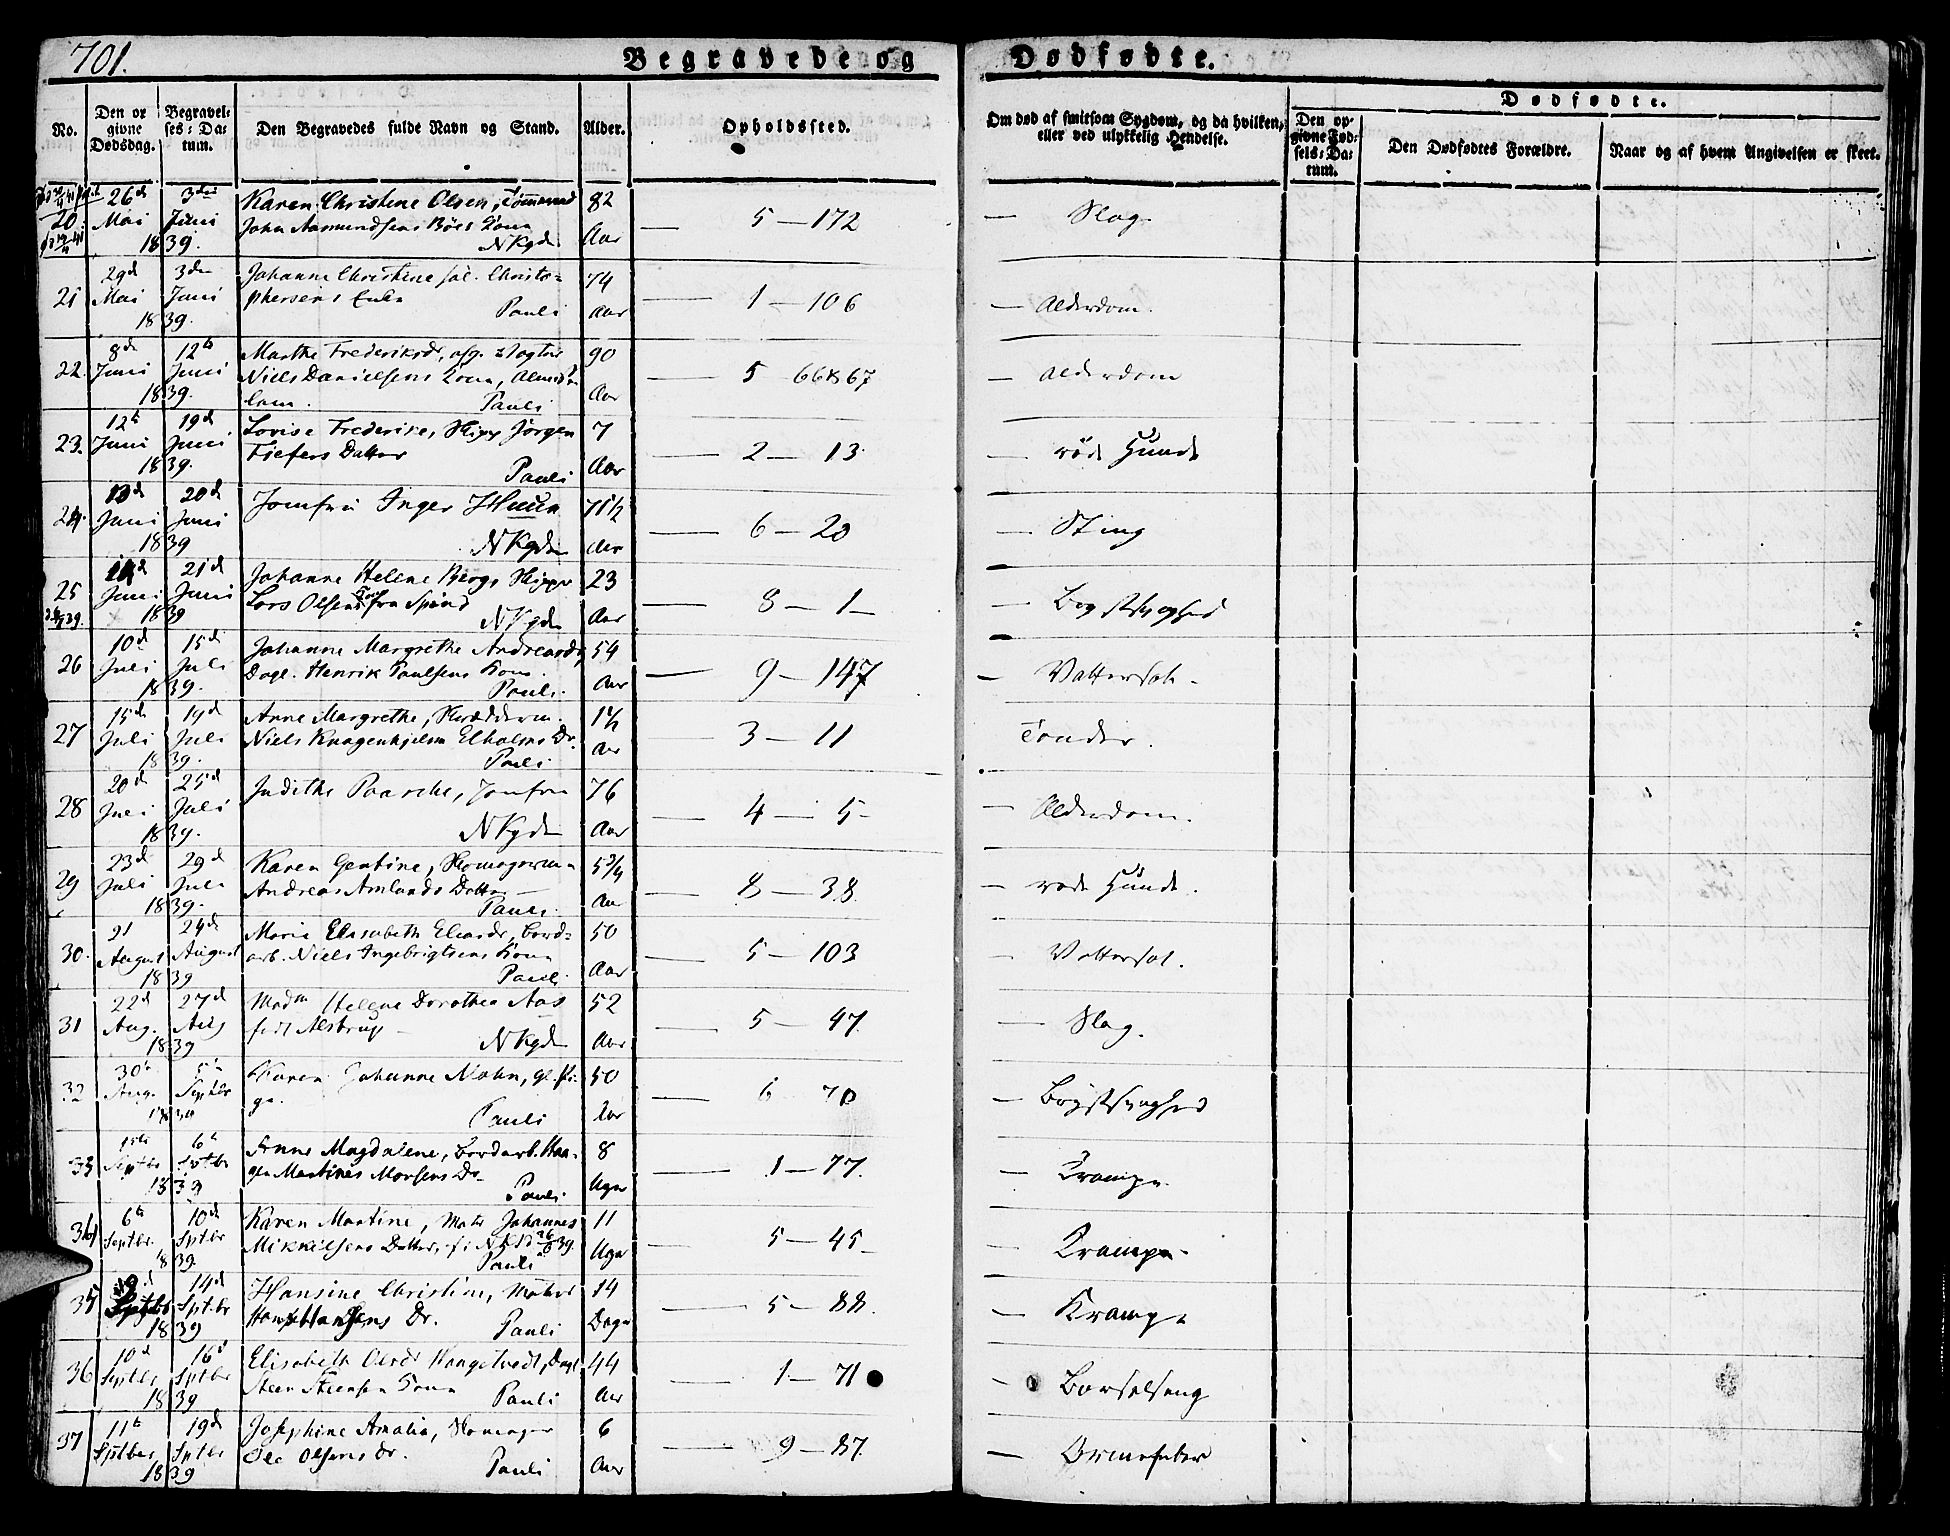 701.
Begravede og Dødfødte.
No.
Den opgivne Dødsdag.
Begravelses-Datum.
Den Begravedes fulde Navn og Stand.
Alder.
Opholdssted.
Om død af smitsom Sygdom, og da hvilken, eller ved ulykkelig Hendelse.
Dødfødte.
Den opgivne Fødsels-Datum.
Den Dødfødtes Forældre.
Naar og af hvem Angivelsen er skeet.
20. 26d Mai 3die Juni 1839. Karen Christine Olsen, Tømmermd 82
John Aamundsens Bøes Kone
NKgd Aar — 5 — 172 — Slag
21 29d Mai 3die Juni 1839. Johanne Christine sal. Christo- 74
phersens Enke
Pauli Aar — 1 — 106 — Alderdom.
22. 8d Juni 12te Juni 1839. Marthe Frederiksdr, afg. Vogter 90
Niels Danielsens Kone, Almisse
lem. Pauli Aar — 5 — 66 & 67 — Alderdom
23. 12te Juni 19d Juni 1839. Lovise Frederike, Skipp Jørgen 7
Fiefers Datter
Pauli Aar — 2 — 13. — røde Hunde
24. 13d Juni 20d Juni 1839 Jomfru Inger Huun 71½
NKgden Aar — 6 — 20 — Sting
25 14d Juni 21d Juni 1839 Johanne Helene Bergs Skipper 23
Lars Olsens Kone fra Spind
NKgden Aar — 8 — 1 — Brystsyghed
26 10d Juli 15d Juli 1839. Johanne Margrethe Andreasdr, 54
Dagl. Henrik Paulsens Kone.
Pauli. Aar — 9 — 147 — Vattersot.
27 15d Juli 19d Juli 1839. Anne Margrethe, Skræddern. 1½
Niels Knagenhjelm Elholms Dr.
Pauli Aar 3 — 11 Tænder.
28 20d Juli 25d Juli 1839. Judithe Paasche, Jomfru 76
NKgden Aar — 4 — 5 — Alderdom.
29 23d Juli 29d Juli 1839. Karen Gentine, Skomagerm 5¾
Andreas Amlands Datter —
Pauli. Aar — 8 — 38. — røde Hunde.
30. 21 August 24d August 1839 Marie Elisabeth Eliasdr, Bord-
arb. Niels Ingebrigtsens Kone 50
Pauli. Aar — 5 — 103 — Vattersot.
31 22d Aug. 27d Aug 1839 Madm Helene Dorothea Aas 52
født Alstrup —
NKgden Aar — 5 — 47. — Slag.
32 30te Aug. 5te Septbr 1839 Karen Johanne Nahn, gl. Pi- 50
ge.
Pauli Aar — 6 70 — Brystsyghed
33 Septbr 6te Septbr 1839 Anne Magdalene, Bordarb. Haa- 8
gen Martines Morsens Dr.
Pauli Uger — 1 — 77. — Krampe.
34 6te Septbr. 10d Septbr 1839. Karen Martine, Matr Johannes 11
Mikkelsens Datter, f. i NKgd 39.
Pauli Uger — 5 — 45 — Krampe.
35 Septbr 14d Septbr 1839 Hansine Christine, Matros 14
Hans Hansens Dr.
Pauli Dage — 5 — 88. — Krampe
36 10d Septbr 16d Septbr 1839 Elisabeth Olsdr Haugetvedt, Dagl. 44
Steen Steensen Kone
Pauli Aar — 1 — 71 — Barselseng
37 11te Septber 19d Septbr 1839 Josephine Amalia, Skomager 6
Ole Olsens Dr.
Pauli Aar — 9 — 87. — Ormefeber